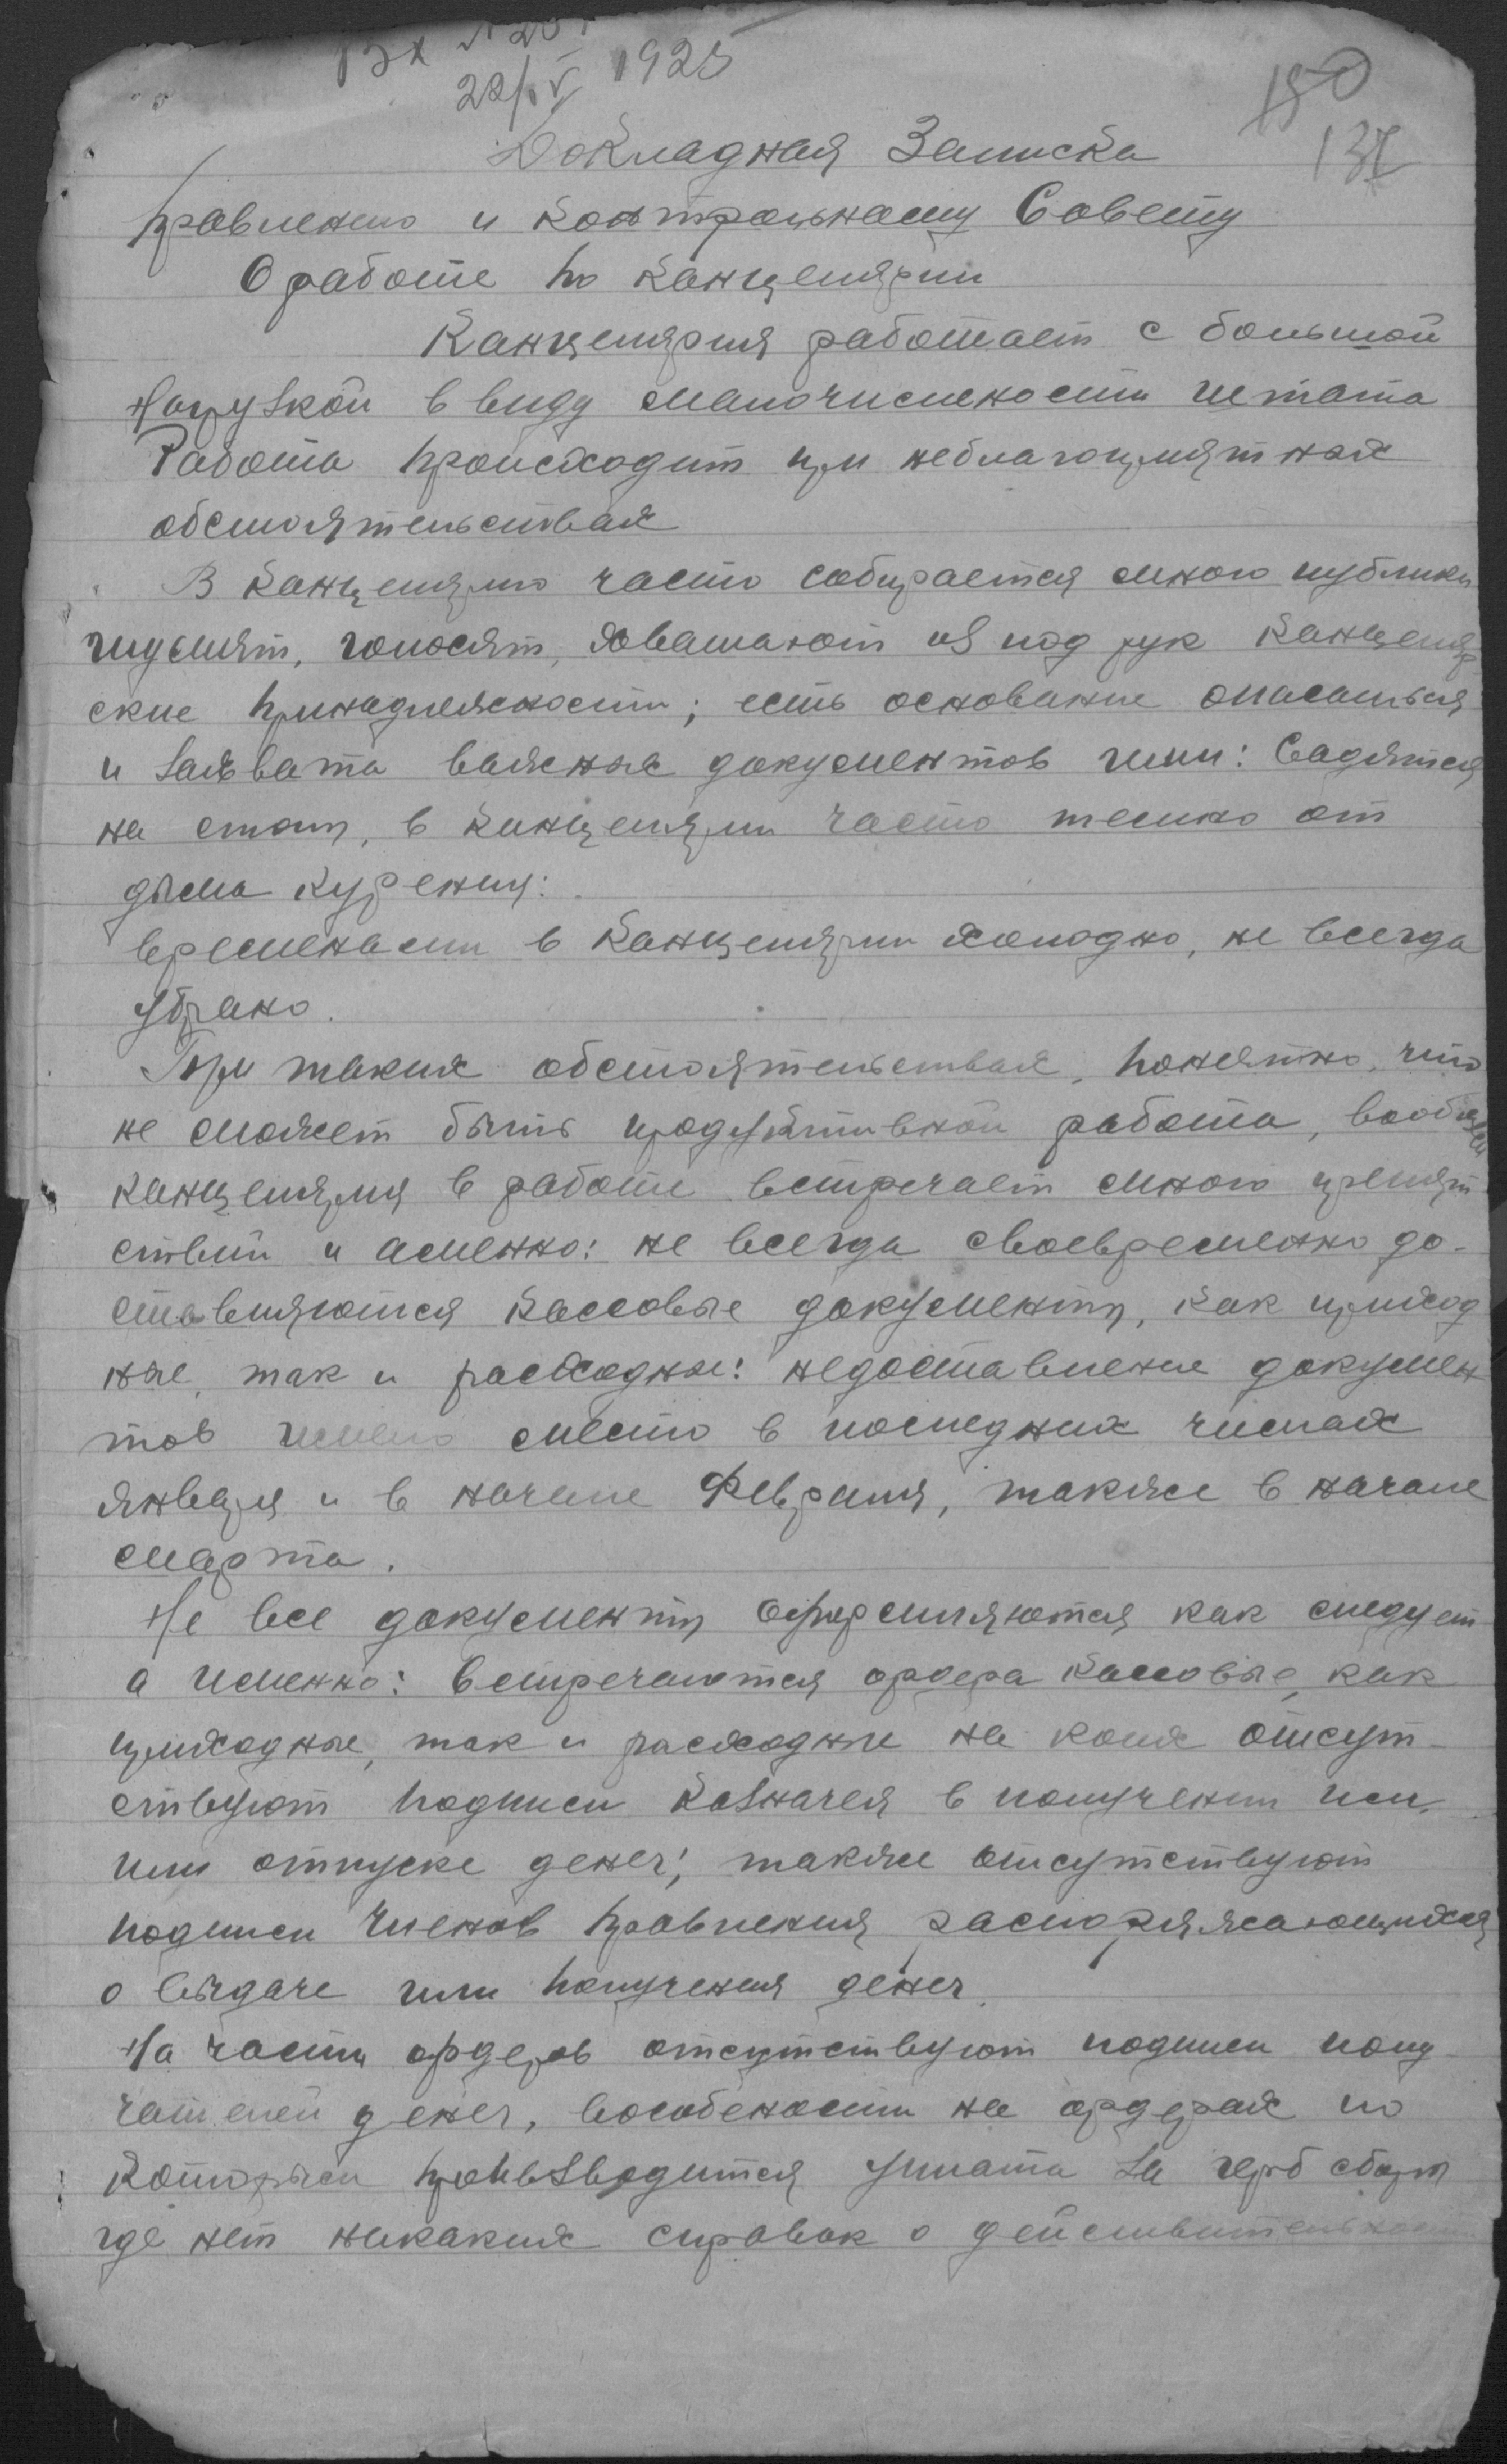 Вх
22/IV 1925
150
137
Докладная Записка
Правлению и Контрольному Совету
О работе по Канцелярии
Канцелярия работает с большой
Нагрузкой в виду малочислености штата
Работа происходит при неблагоприятных
обстоятельствах
В Канцелярию часто собирается много публики
шумят, голосят, хватают из под рук Канцеляр
ские принадлежности; есть основание опасаться
и захвата важных документов ими: Садятся
на столы, в Канцелярии часто темно от
дыма курения:
временами в Канцелярии холодно, не всегда
убрано.
При таких обстоятельствах, понятно, что
не может быть продуктивной работа, вообще
Канцелярия в работе встречает много препят
ствий и аменно: не всегда своевременно до-
ставляются Кассовые документы, как приход
ные, так и расходные: недоставление докумен
тов имело место в последних числах
января и в начале Февраля, также в начале
марта.
Не все документы оформляются как следует
а именно: встречаются ордера Кассовые, как
приходные, так и расходные на коих отсут-
ствуют подписи Казначея в получении
или отпуске денег; также отсутствуют
подписи Членов Правления распоряжающихся
о выдаче или получения денег.
На части ордеров отсутствуют подписи полу-
чателей денег, вособености на ордерах по
Которым производится уплата за герб сборы
где нет никаких справок о действительности